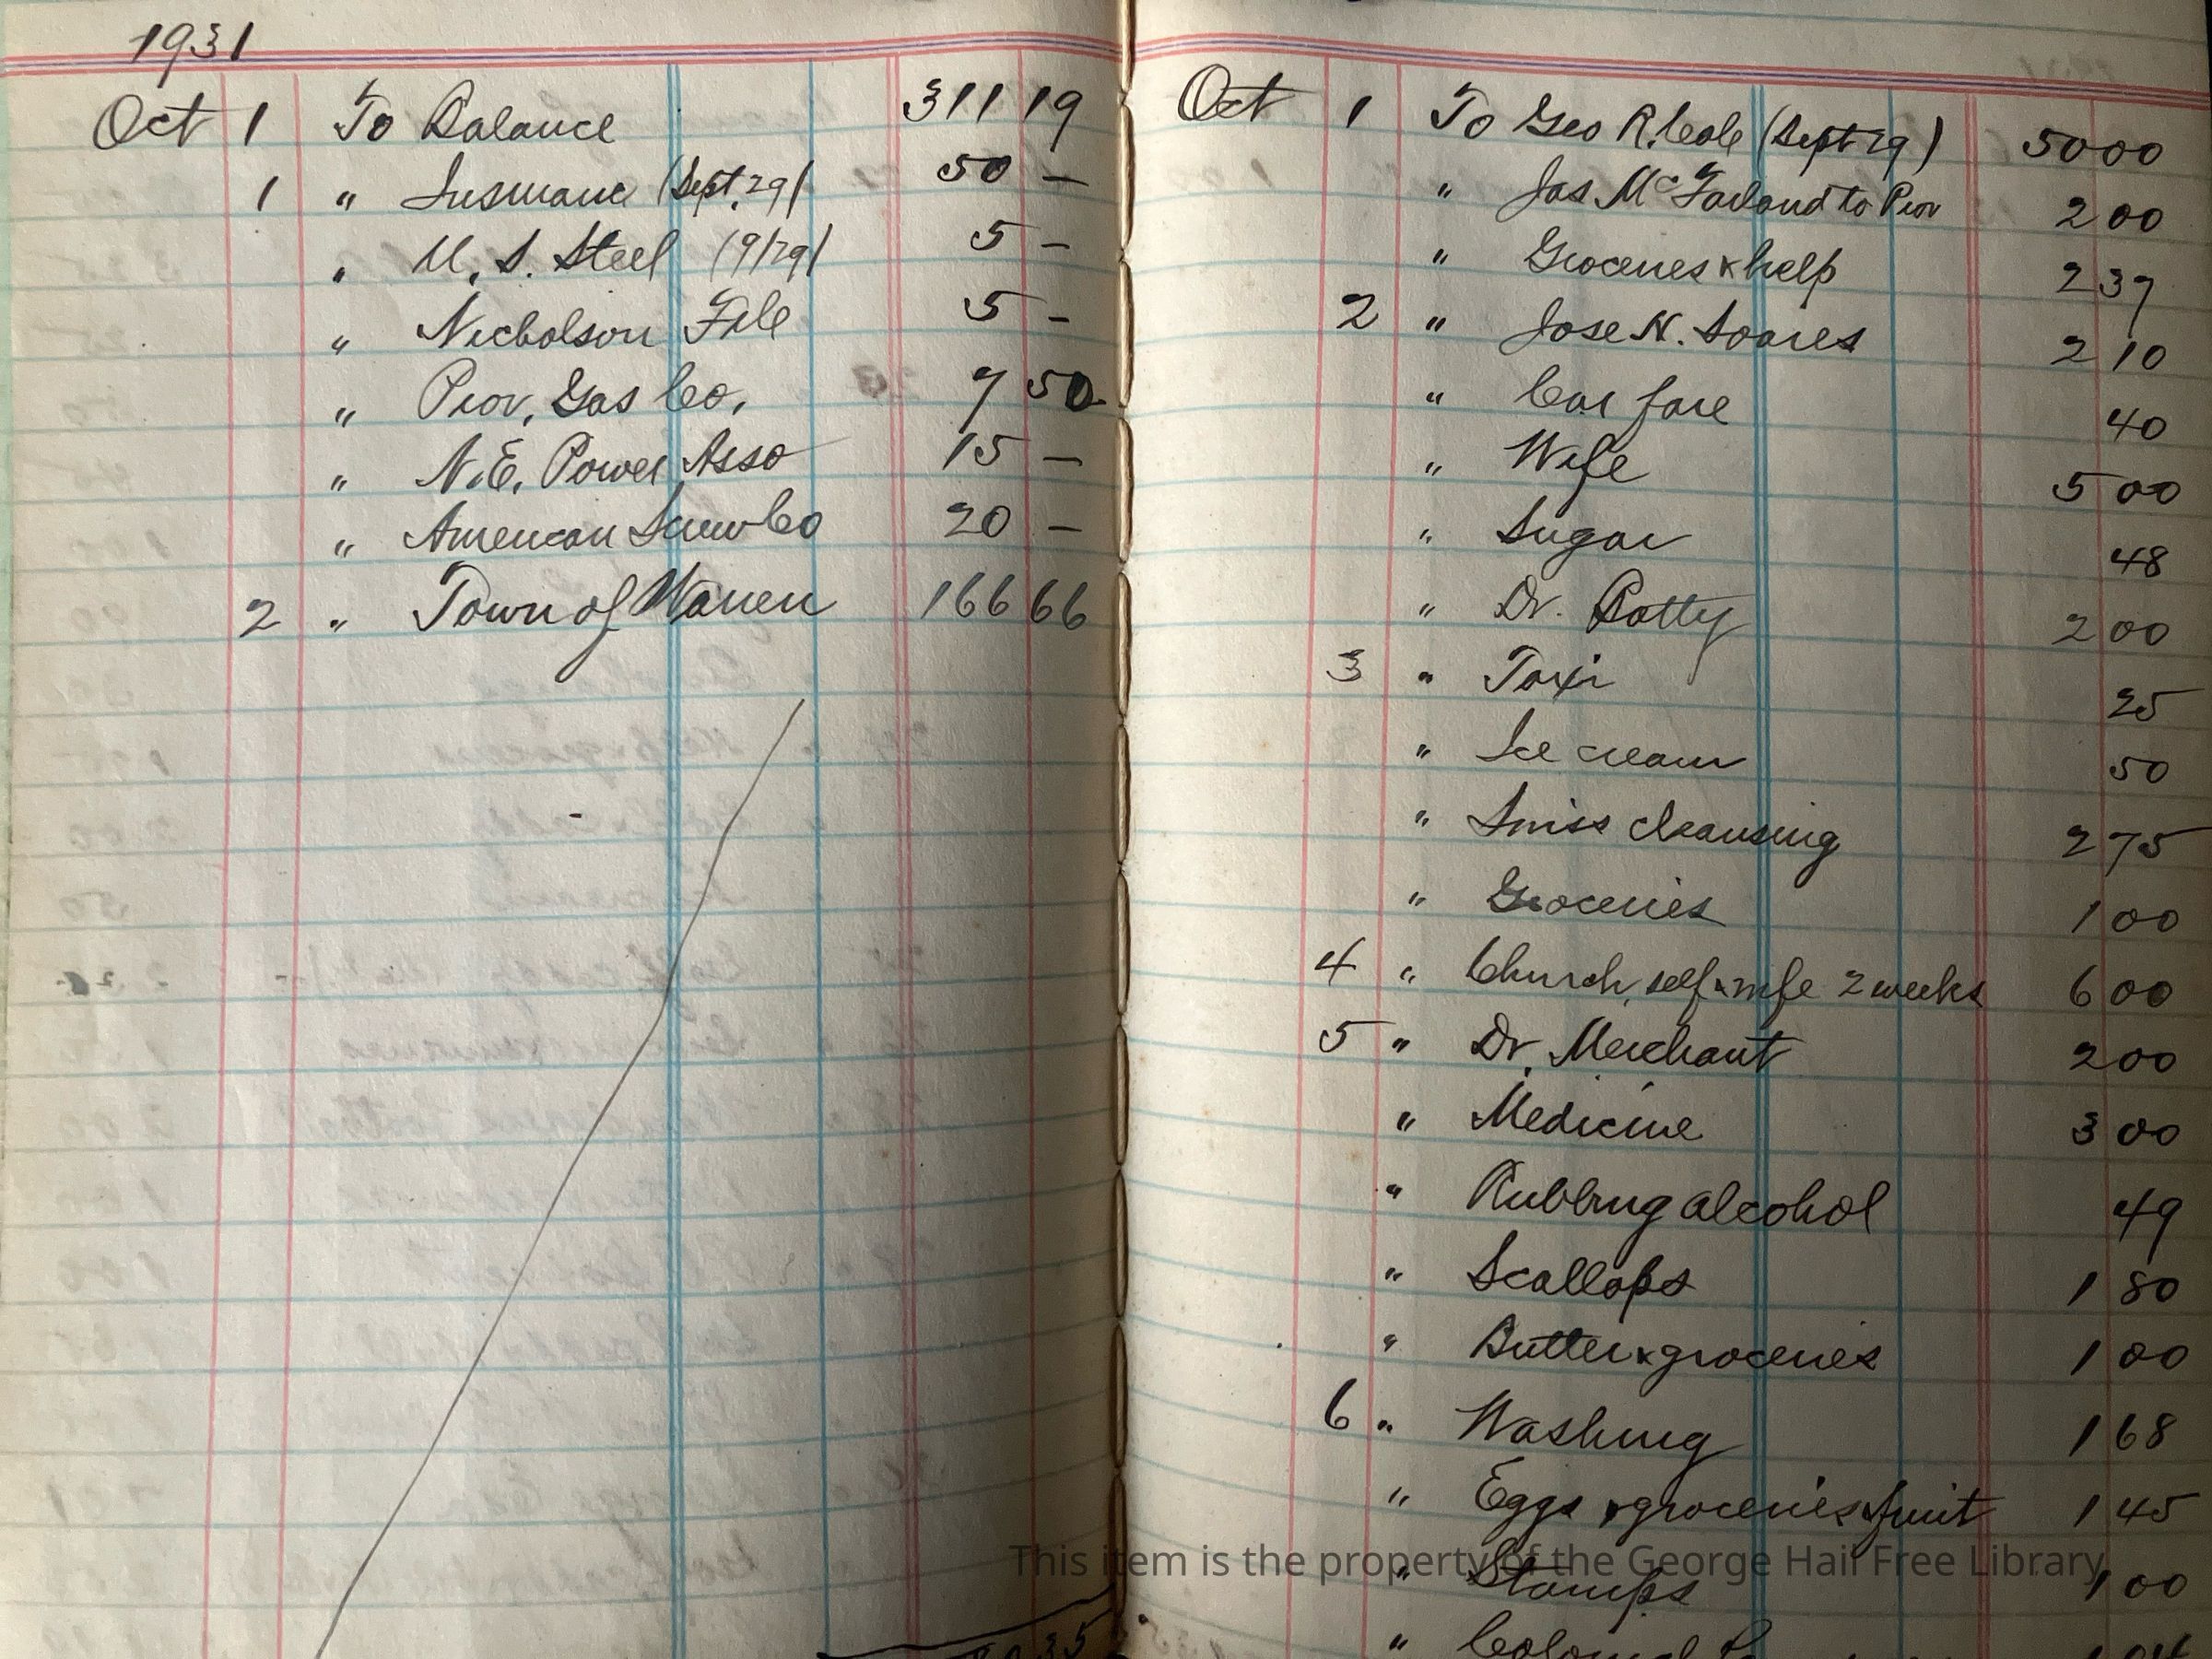 1931
Oct 1 To Balance 311 19
1 " Insurance (Sept. 29) 50 -
" U. S. Steel (9/29) 5 -
" Nicholson File 5 -
" Prov. Gas Co. 7 50
" N.E. Power Asso 15 -
" American Screw Co 20 -
2 " Town of Warren 166 66
Oct 1 To Geo R. Cole (Sept 29) 50 00
" Jas McFarland to Prov 2 00
" Groceries & help 2 37
2 " Jose N. Soares 2 10
" Car fare 40
" Wife 5 00
" Sugar 48
" Dr. Batty 2 00
3 " Taxi 25
" Ice cream 50
" Swiss cleansing 2 75
" Groceries 1 00
4 " Church, self & wife 2 weeks 6 00
5 " Dr. Merchant 2 00
" Medicine 3 00
" Rubbing alcohol 49
" Scallops 1 80
" Butter & groceries 1 00
6 " Washing 1 68
" Eggs & groceries & fruit 1 45
" Stamps 1 00
" Colonial
This item is the property of the George Hail Free Library.